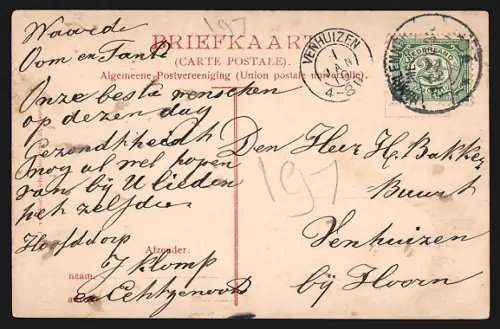 Waarde
Oom en Tante
Onze beste wenschen
op dezen dag
Gezondheid
mog al wel hopen
van bij U lieden
het zelfde
Hoofddorp
J Klomp
en Echtgenoote
197
BRIEFKAART
(CARTE POSTALE).
Algemeene-Postvereeniging (Union postale universelle).
Afzender:
naam:
VENHUIZEN
JAN
4-8
NEDERLAND
2½
197
Den Heer H. Bakker
Buurt
Venhuizen
bij Hoorn